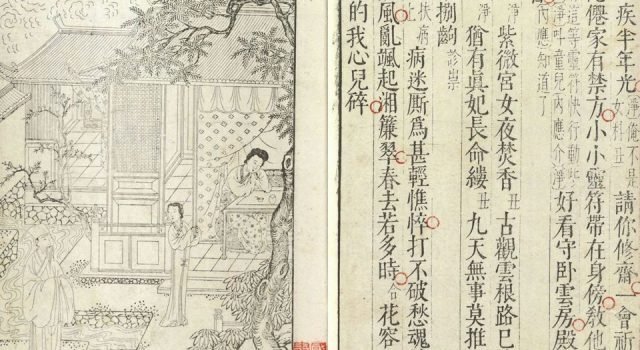 疾半年光淨俺不是女科丑請你修齋一會祈
僊家有禁方小小靈符帶在身傍敎他
這等靈符快行動些
淨叱童兒內應介淨好看守臥雲房殿
內應知道了
淨紫微宮女夜焚香丑古觀雲根路已
淨猶有眞妃長命縷丑九天無事莫推
捌齣診祟
扶病病迷厮爲甚輕憔悴打不破愁魂
風亂颯起湘簾翠春去若多時花容
的我心兒碎